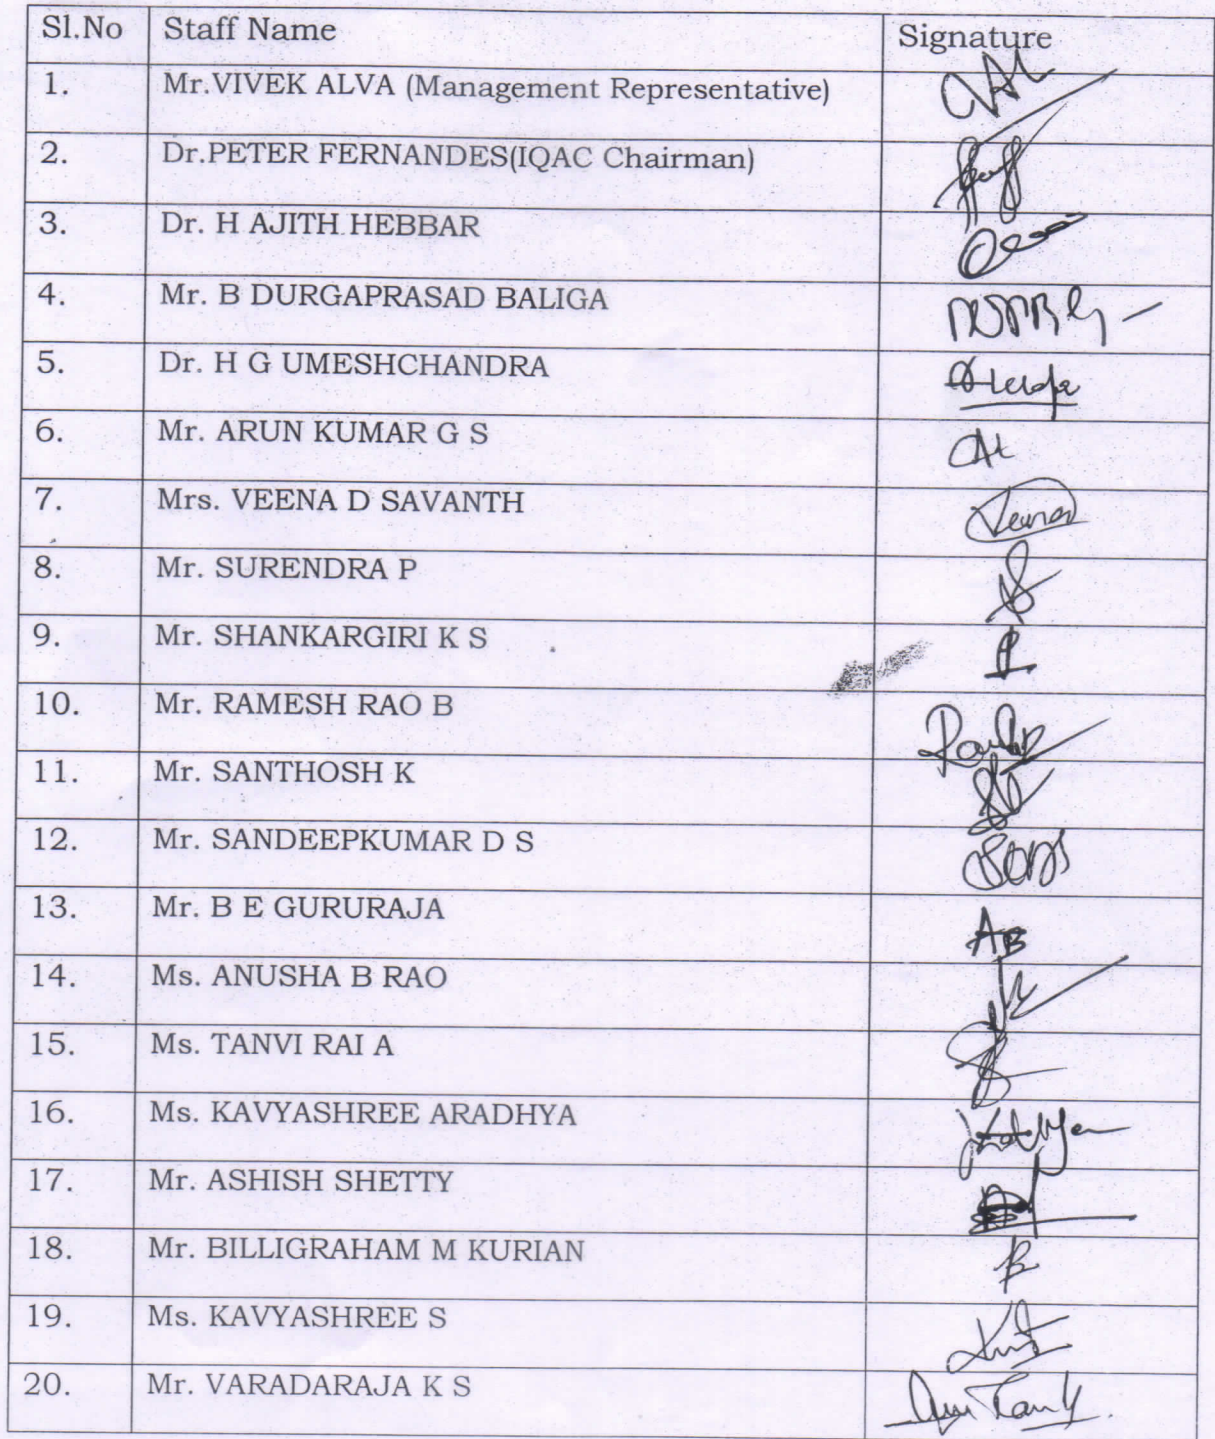 Sl.No Staff Name Signature
1. Mr.VIVEK ALVA (Management Representative)
2. Dr.PETER FERNANDES(IQAC Chairman)
3. Dr. H AJITH HEBBAR
4. Mr. B DURGAPRASAD BALIGA
5. Dr. H G UMESHCHANDRA
6. Mr. ARUN KUMAR G S
7. Mrs. VEENA D SAVANTH Veena
8. Mr. SURENDRA P
9. Mr. SHANKARGIRI K S
10. Mr. RAMESH RAO B
11. Mr. SANTHOSH K
12. Mr. SANDEEPKUMAR D S
13. Mr. B E GURURAJA
14. Ms. ANUSHA B RAO
15. Ms. TANVI RAI A
16. Ms. KAVYASHREE ARADHYA
17. Mr. ASHISH SHETTY
18. Mr. BILLIGRAHAM M KURIAN
19. Ms. KAVYASHREE S
20. Mr. VARADARAJA K S